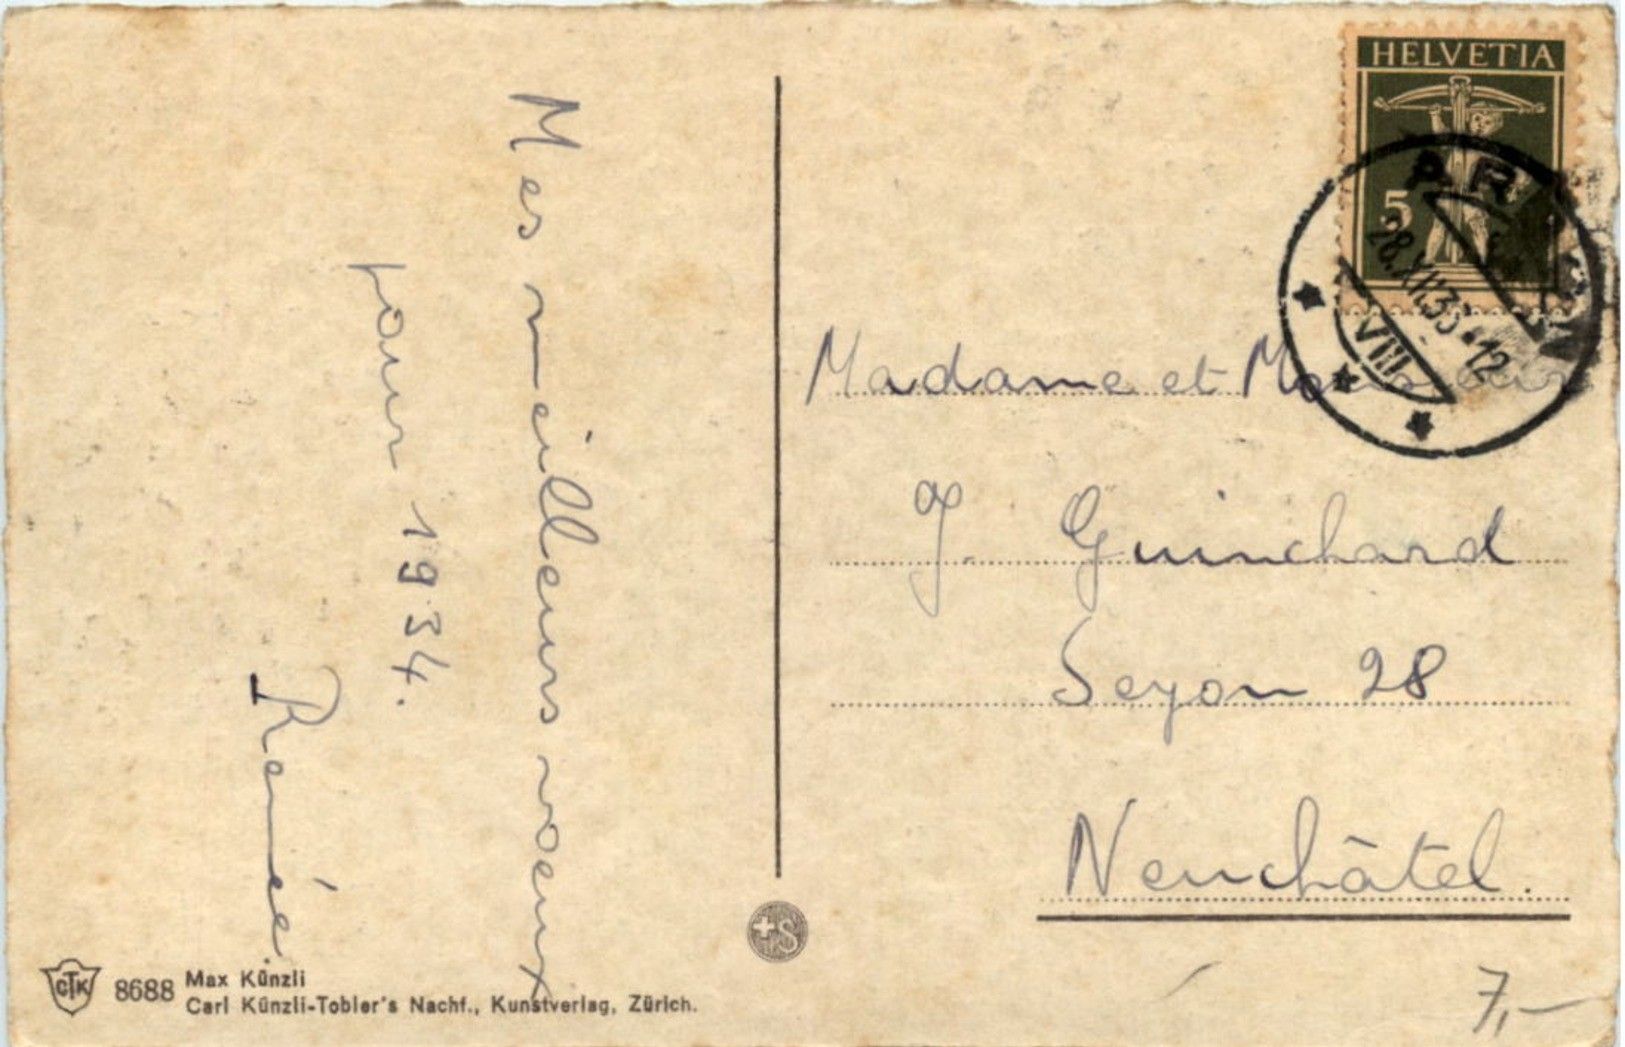 Mes meilleurs voeux
pour 1934.
Renée
HELVETIA
5
28.XII.33-12
VIII
Madame et Monsieur
J. Guinchard
Seyon 28
Neuchâtel.
7,-
CTK
8688
Max Künzli
Carl Künzli-Tobler's Nachf., Kunstverlag, Zürich.
+S